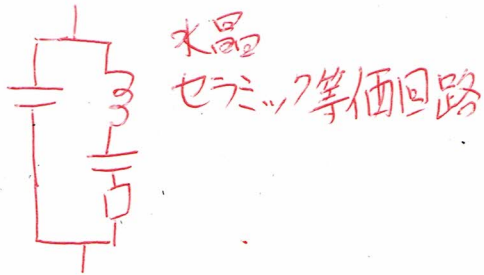 水晶
セラミック等価回路